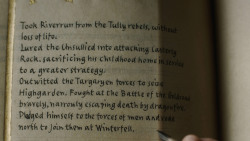 Took Riverrun from the Tully rebels, without
loss of life.
Lured the Unsullied into attacking Casterly
Rock, sacrificing his childhood home in service
to a greater strategy.
Outwitted the Targaryen forces to seize
Highgarden. Fought at the Battle of the Goldroad
bravely, narrowly escaping death by dragonfire.
Pledged himself to the forces of men and rode
north to join them at Winterfell.